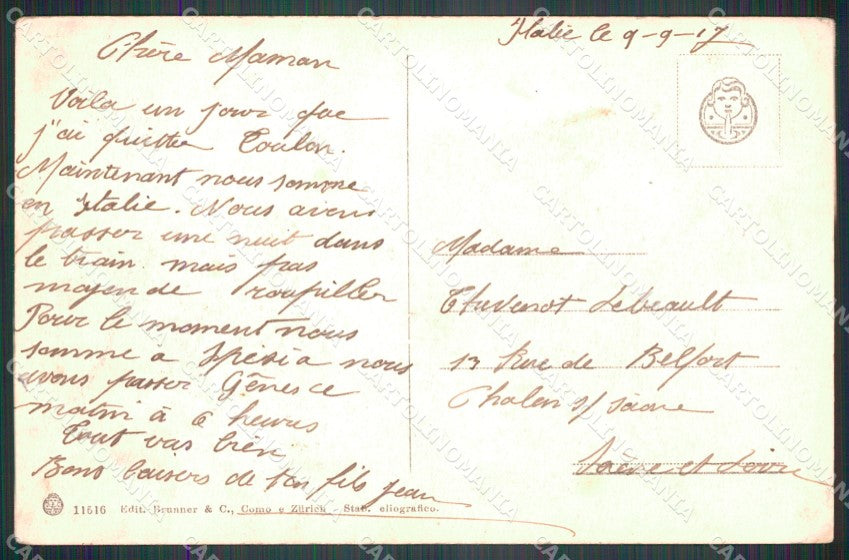 Italie le 9-9-17
Chère Maman
Voila un jour que
j'ai quittee Toulon.
Maintenant nous somme
en Italie. Nous avons
passer une nuit dans
le train mais pas
moyen de roupiller
Pour le moment nous
somme a Spésia nous
avons passer Gênes ce
matin à 6 heurs
Tout vas bien
Bons baisers de ton fils Jean
Madame
Thevenot Lebeault
13 Rue de Belfort
Chalon s/ Saône
Saone et Loire
11616 Edit. Brunner & C., Como e Zürich - Stab. eliografico.
CARTOLINOMANIA